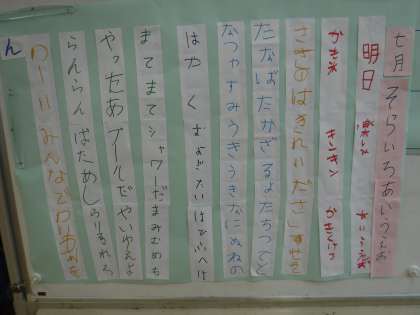 七月 そらいろあいうえお
明日 楽しみ わいうえお
かき氷 キンキン かきくけこ
ささのはきれいださしすせそ
たなばたかざるよたちつてと
なつやすみうきうきなにぬねの
はやく およぎたいはひふへほ
まてまてシャワーだまみむめも
やったあプールだやいゆえよ
らんらん ばためしらりるれろ
わーい みんなでわいうえを
ん